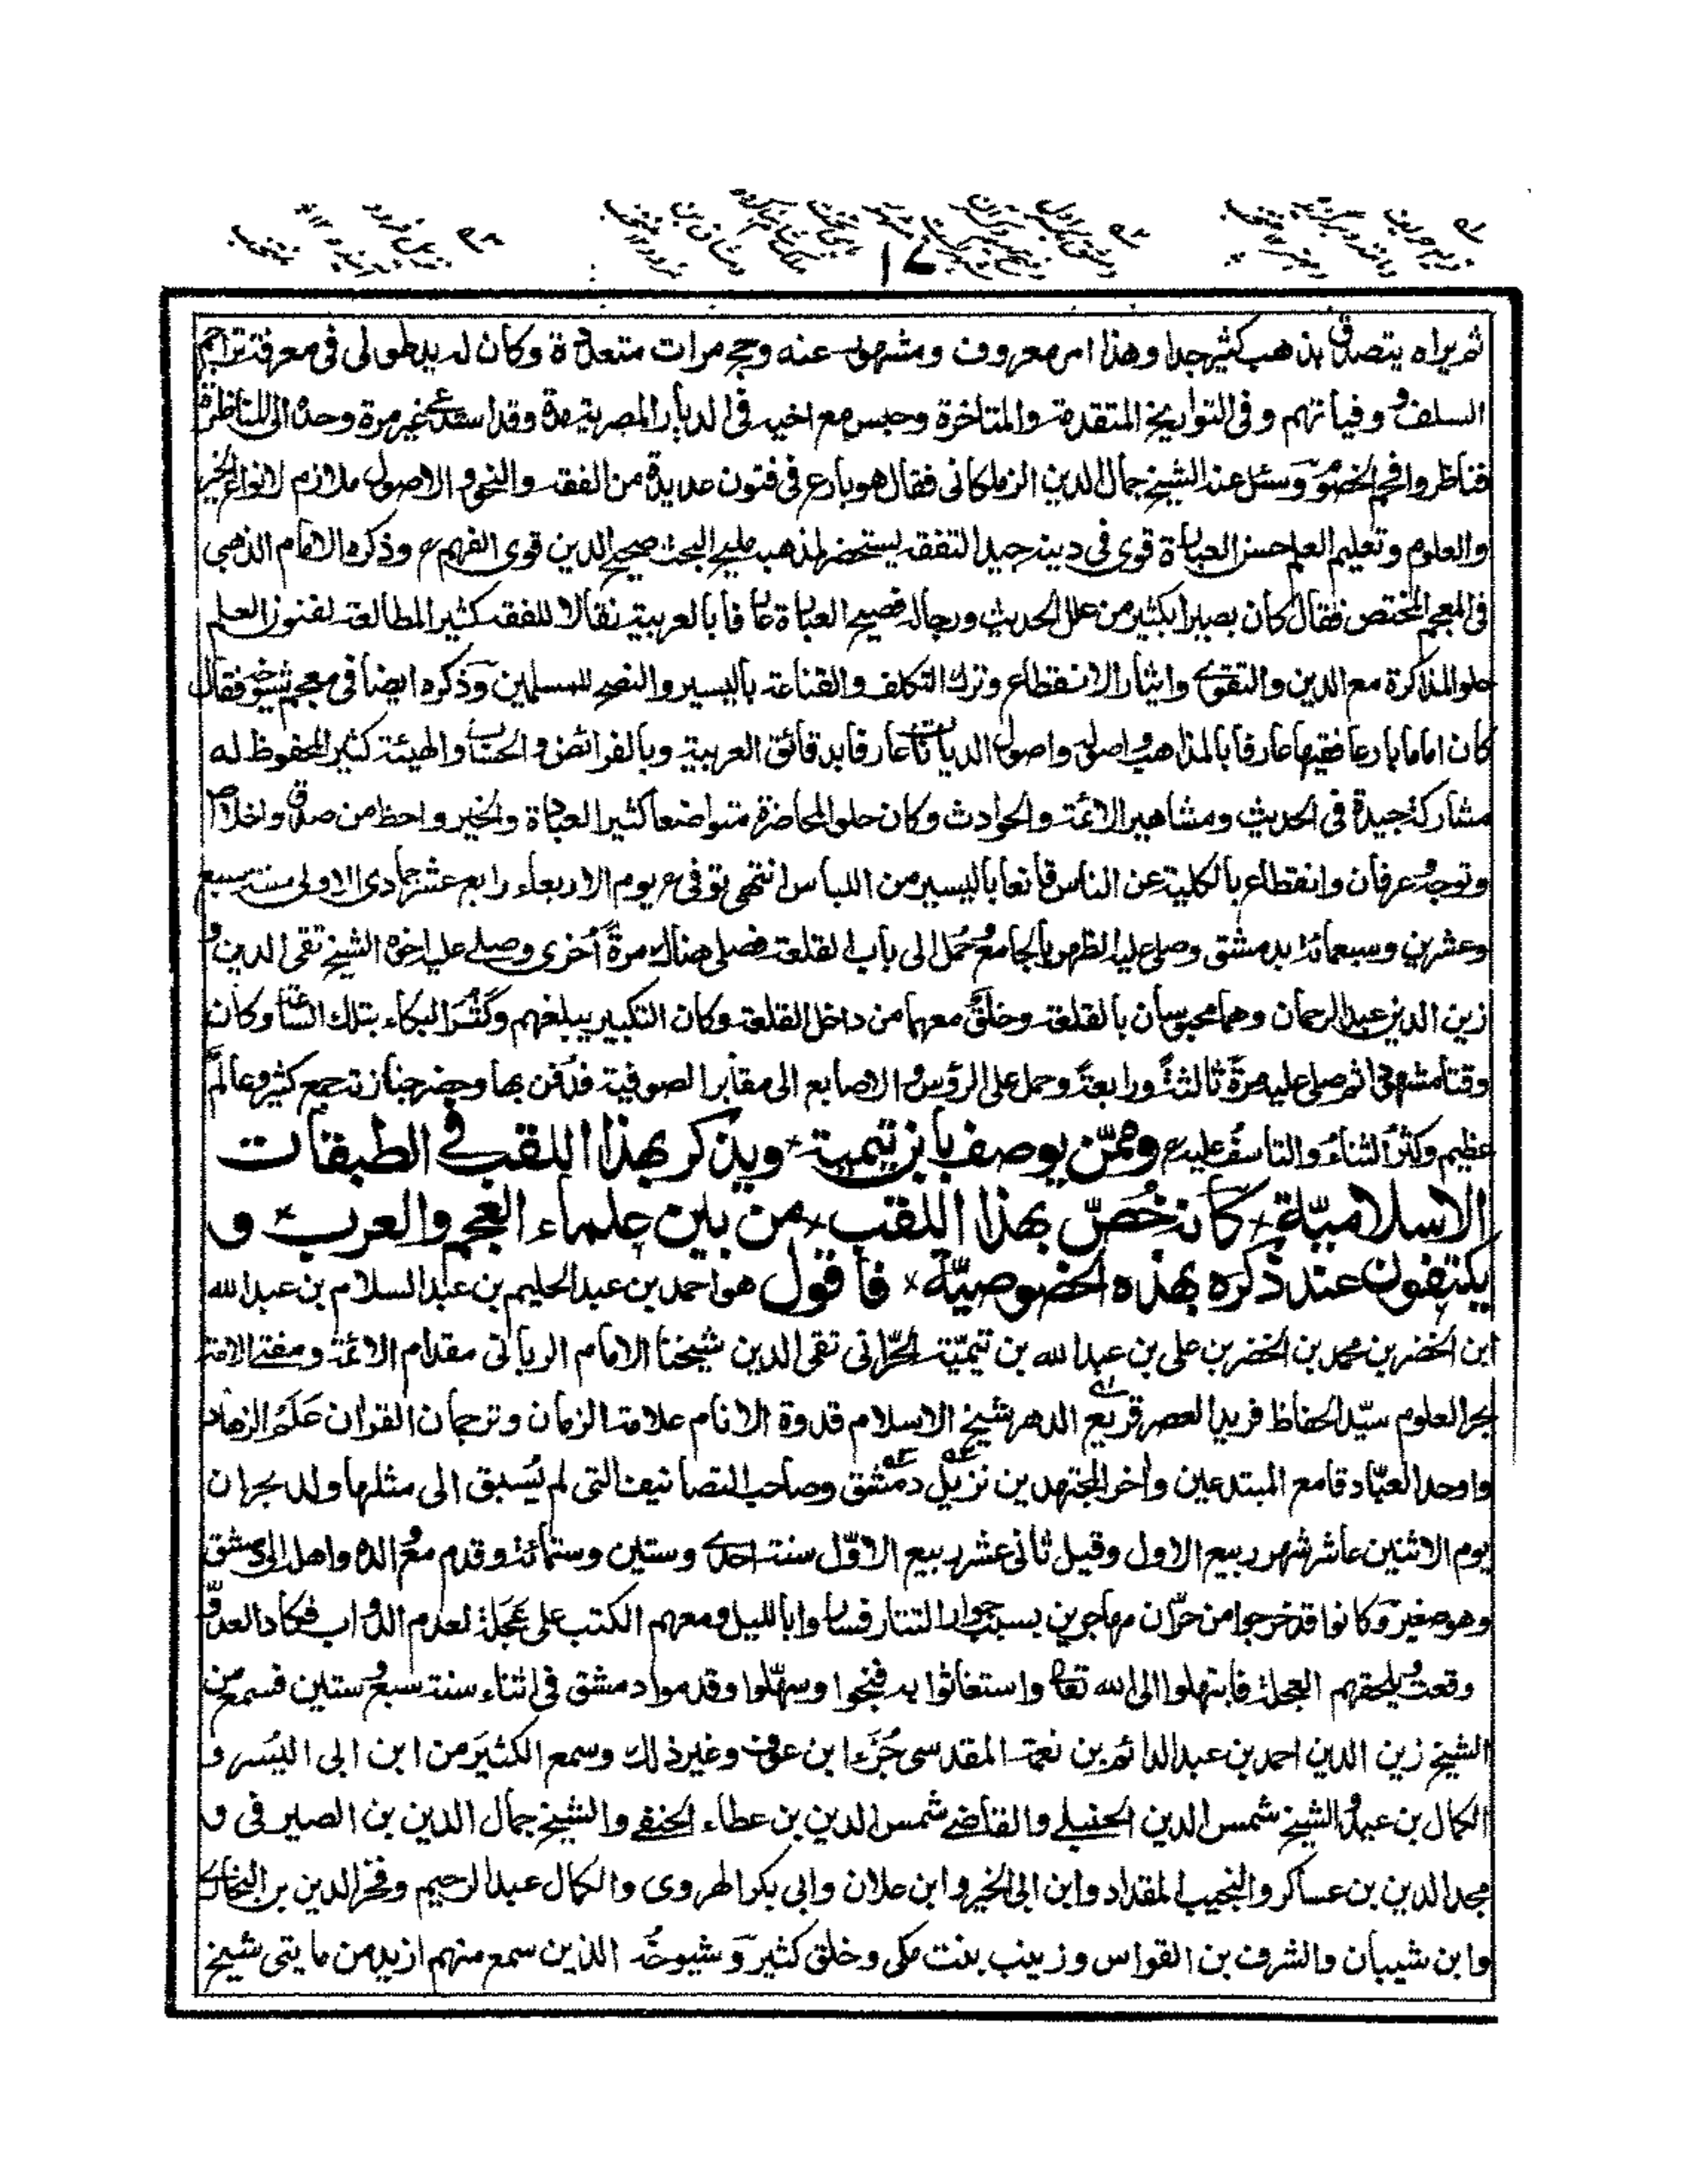 ١٧
ثم يراه يتصدق بذهب كثير جدا وهذا امر معروف ومشهور عنه وحج مرات متعددة وكان له يد طولى فى معرفة تراجم
السلف ووفياتهم وفى التواريخ المتقدمة والمتاخرة وحبس مع اخيه فى الديار المصرية مدة وقد استدعى غير مرة وحده الى المناظرة
فناظر وافحم الخصوم وسئل عنه الشيخ جمال الدين الزملكانى فقال هو بارع فى فنون عديدة من الفقه والنحو والاصول ملازم لانواع الخير
والعلوم وتعليم العلم حسن العبارة قوى فى دينه جيد التفقه يستحضر لمذهبه مليح البحث صحيح الدين قوى الفهم ع وذكره الامام الذهبى
فى المعجم المختص فقال كان بصيرا بكثير من علل الحديث ورجاله فصيح العبارة عارفا بالعربية نقالا للفقه كثير المطالعة لفنون العلم
حلو المذاكرة مع الدين والتقوى وايثار الانقطاع وترك التكلف والقناعة باليسير والنصح للمسلمين وذكره ايضا فى معجم شيوخه فقال
كان اماما بارعا فقيها عارفا بالمذاهب واصوله واصول الديانات عارفا بدقائق العربية وبالفرائض والحساب والهيئة كثير المحفوظ له
مشاركة جيدة فى الحديث ومشاهير الائمة والحوادث وكان حلو المحاضرة متواضعا كثير العبادة والخير واحظ من صدق واخلاص
وتوجه وعرفان وانقطاع بالكلية عن الناس قانعا باليسير من اللباس انتهى توفى ع يوم الاربعاء رابع عشر جمادى الاولى سنة سبع
وعشرين وسبعمائة بدمشق وصلى عليه الظهر بالجامع وحُمل الى باب القلعة فصلى هناك مرةً أخرى وصلى عليه اخوه الشيخ تقى الدين و
زين الدين عبد الرحمان وهما محبوسان بالقلعة وخلقٌ معهما من داخل القلعة وكان التكبير يبلغهم وكَثُرَ البكاء بتلك الساعة وكان
وقتا مشهودا ثم صلى عليه مرةً ثالثةً ورابعةً وحمل على الرؤس والاصابع الى مقابر الصوفية فدُفن بها وحضر جنازته جمع كثير وعالَم
عظيم وكثُر الثناء والتاسفُ عليه ع وممّن يوصف بابن تيمية ويذكر بهذا اللقب فى الطبقات
الاسلاميّة كانه خُصّ بهذا اللقب من بين علماء العجم والعرب و
يكتفون عند ذكره بهذه الخصوصيّة فاقول هو احمد بن عبد الحليم بن عبد السلام بن عبد الله
ابن الخضر بن محمد بن الخضر بن على بن عبد الله بن تيميّة الحرّانى تقى الدين شيخنا الامام الربانى مقدام الائمة ومفتى الامة
بحر العلوم سيّد الحفاظ فريد العصر قريع الدهر شيخ الاسلام قدوة الانام علامة الزمان وترجمان القرآن عَلَمُ الزهاد
واوحد العبّاد قامع المبتدعين وآخر المجتهدين نزيل دمشق وصاحب التصانيف التى لم يُسبق الى مثلها ولد بحران
يوم الاثنين عاشر شهر ربيع الاول وقيل ثانى عشر ربيع الاوّل سنة احدى وستين وستمائة وقدم مع والده واهله الى دمشق
وهو صغير وكانوا قد خرجوا من حرّان مهاجرين بسبب جوار التتار فساروا بالليل ومعهم الكتب على عَجَلة لعدم الدواب فكاد العدوّ
يلحقهم ووقعت العجلة فابتهلوا الى الله تعالى واستغاثوا به فنجوا وسهّلوا وقدموا دمشق فى اثناء سنة سبع وستين فسمع من
الشيخ زين الدين احمد بن عبد الدائم بن نعمة المقدسى جُزءَ ابن عرفة وغير ذلك وسمع الكثيرَ من ابن ابى اليُسر و
الكمال بن عبد والشيخ شمس الدين الحنبلى والقاضى شمس الدين بن عطاء الحنفى والشيخ جمال الدين بن الصيرفى و
مجد الدين بن عساكر والنجيب المقداد وابن ابى الخير وابن علان وابى بكر الهروى والكمال عبد الرحيم وفخر الدين بن البخارى
وابن شيبان والشرف بن القواس وزينب بنت مكى وخلق كثير وشيوخُه الذين سمع منهم ازيد من مايتى شيخ